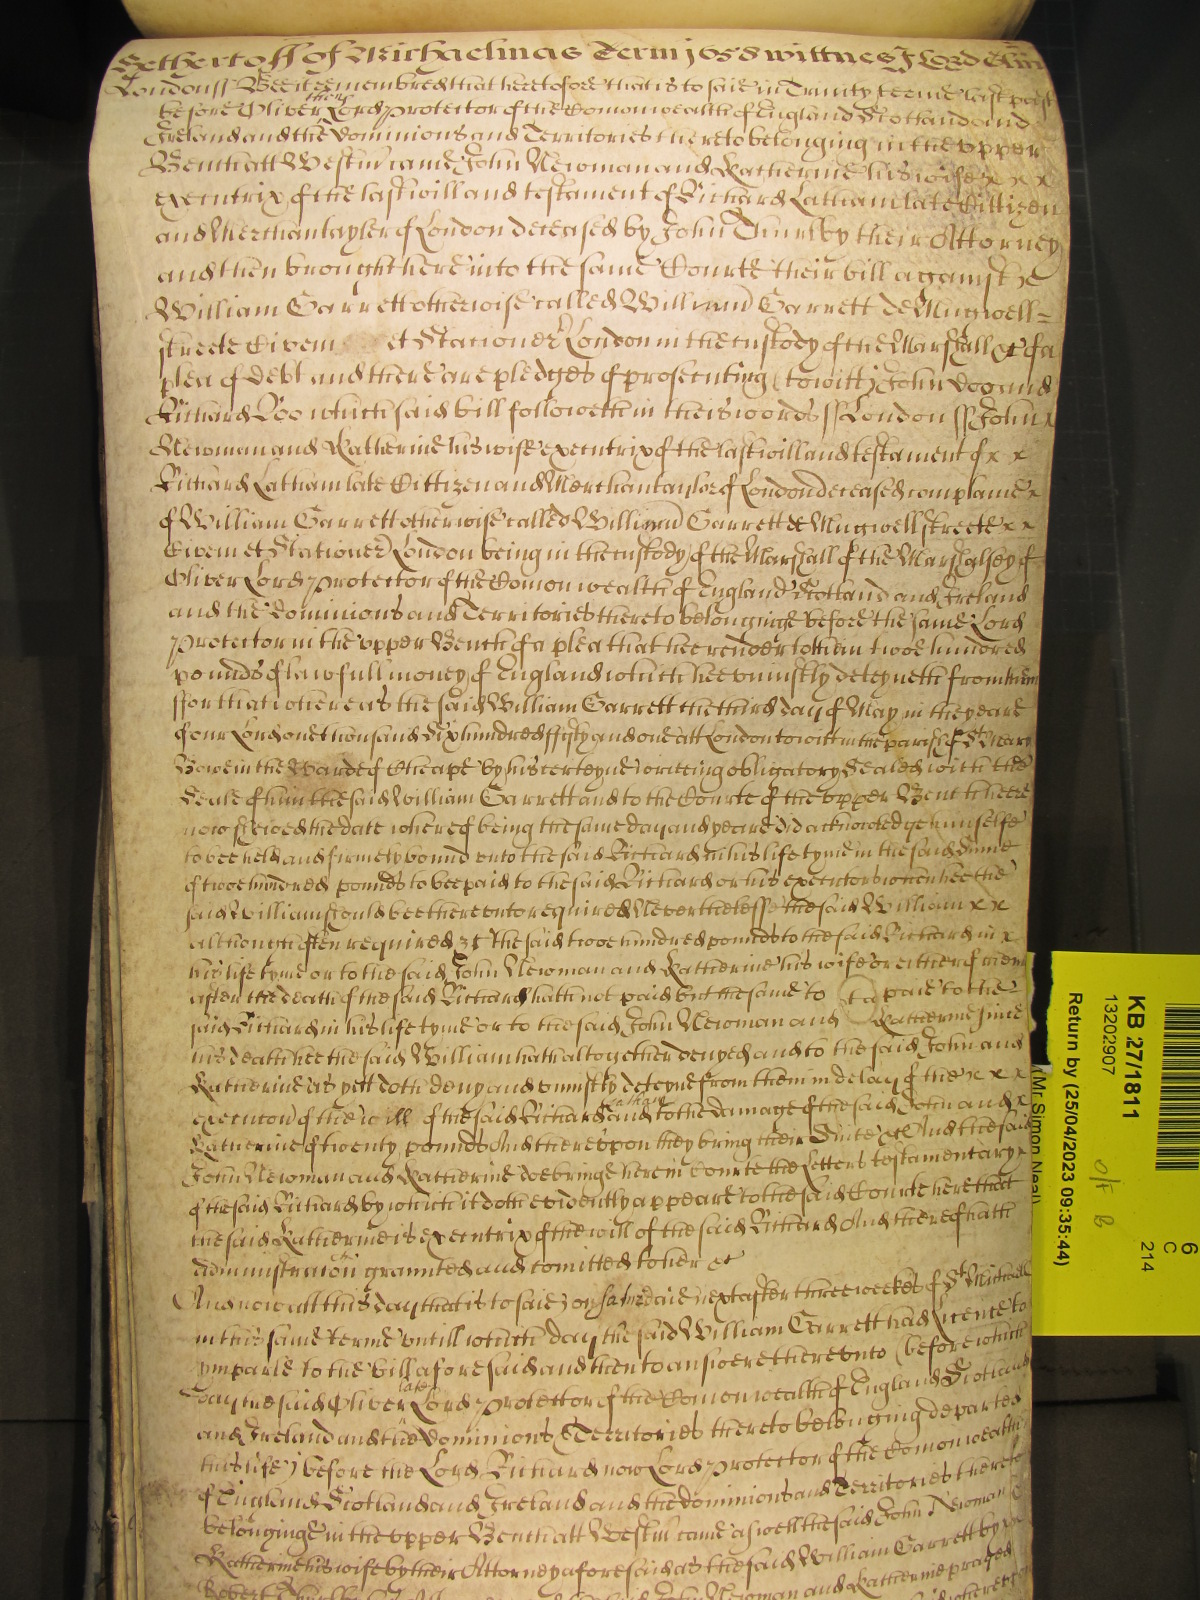 yet hertoff of Michaelmas Terme 1658 wittnes J Lord
London ss Bee it remembred that heretofore that is to said in Trinity terme last past
before Oliver then Lord Protector of the Comonwealth of England Scotland and
Ireland and the dominions and Territories thereto belonging in the upper
Bench att Westmr came John Newman and Katherine his wife x x x
executrix of the last will and testament of Richard Latham late Cittizen
and Merchantayler of London deceased by John Thurlby their Attorney
and then brought here into the same Courte their bill against x
William Garrett otherwise called William Garrett de Mugwell=
streete Civem et Stationer London in the custody of the Marshall &c of a
plea of debt and there are pledges of prosecuting (to witt) John Doo and
Richard Roo which said bill followeth in theis words ss London ss John x
Newman and Katherine his wife executrix of the last will and testament of x x
Richard Latham late Cittizen and Merchantaylor of London deceased complaine x
of William Garrett otherwise called William Garrett de Mugwellstreete x x
Civem et Stationer London being in the custody of the Marshall of the Marshalsey of
Oliver Lord Protector of the Comonwealth of England Scotland and Ireland
and the dominions and Territories thereto belonginge before the same Lord
Protector in the upper Bench of a plea that hee render to them twoe hundred
pounds of lawfull money of England which hee uniustly deteyneth from them
ffor that whereas the said William Garrett the third day of May in the yeare
of our Lord one thousand Six hundred ffifty and one att London to witt in the parish of St Mary
Bowe in the Warde of Cheape by his certeyne writing obligatory Sealed with the
Seale of him the said William Garrett and to the Courte of the upper Bench here
now shewed the date whereof being the same day and yeare did acknowledge himselfe
to bee held and firmely bound unto the said Richard in his life tyme in the said Summe
of twoe hundred pounds to bee paid to the said Richard or his executors when hee the
said William should bee thereunto required Neverthelesse the said William x x
although often required &c the said twoe hundred pounds to the said Richard in x
his life tyme or to the said John Newman and Katherine his wife or either of them
after the death of the said Richard hath not paid but the same to paie to the
said Richard in his life tyme or to the said John Newman and Katherine since
his death hee the said William hath altogether denyed and to the said John and
Katherine as yett doth deny and uniustly deteyne from them in delay of the x x x
execucon of the will of the said Richard Latham and to the damage of the said John and x
Katherine of twenty pounds And thereupon they bring their Suite &c And the said
John Newman and Katherine doe bringe here in Courte the Letters testamentary x
of the said Richard by which it doth evidently appeare to the said Courte here that
the said Katherine is executrix of the will of the said Richard And thereof hath
administracon graunted and comitted to her &c
And now att this day that is to said on Saturdaie next after three weekes of St Michaell
in this same terme untill which day the said William Garrett had licence to
imparle to the bill aforesaid and then to answere thereunto (before which
day the said Oliver late Lord Protector of the Comonwealth of England Scotland
and Ireland and the dominions & Territories thereto belonging departed
this life) before the Lord Richard now Lord Protector of the Comonwealth
of England Scotland and Ireland and the dominions and Territories thereto
belonginge in the upper Bench att Westmr came aswell the said John Newman &
Katherine his wife by their Attorney aforesaid as the said William Garrett by x
Robert John Newman and Katherine prayed
KB 27/1811
13202907
Return by (25/04/2023 09:35:44)
(Mr Simon Neal)
O/F B
6
C
214